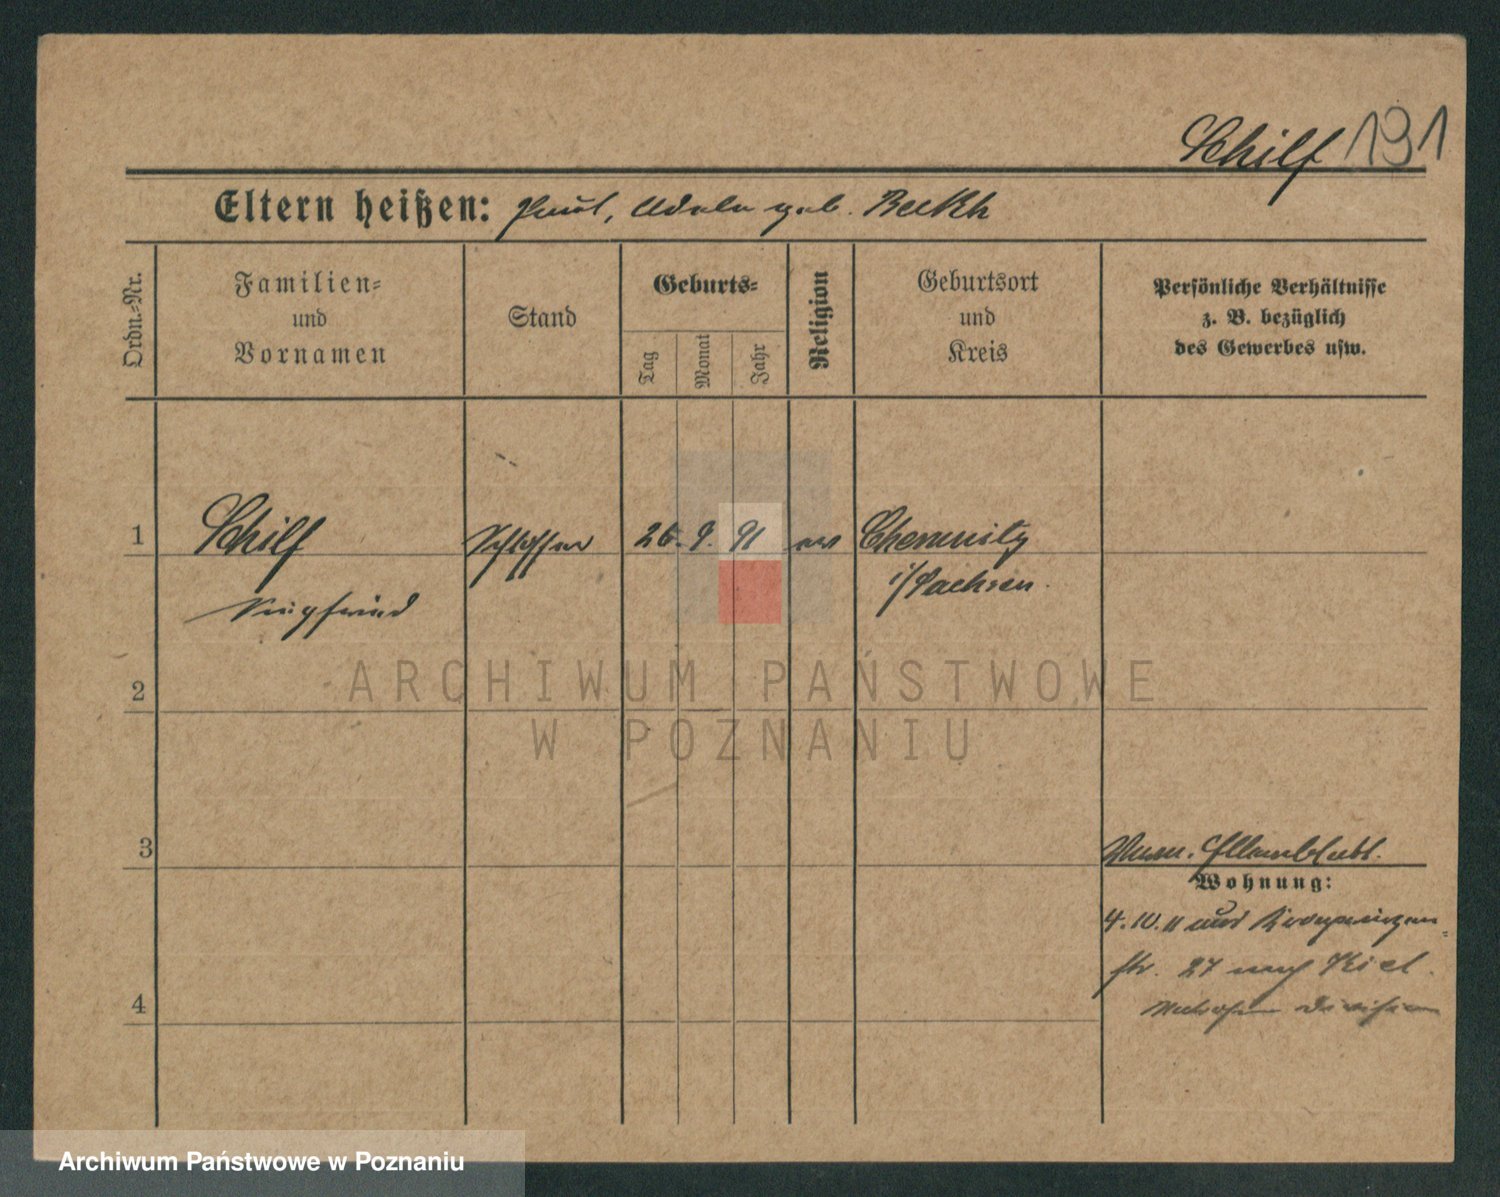 Schilf 191
Eltern heißen: Paul, Adele geb. Beckh
Ordn.-Nr.
Familien-
und
Vornamen
Stand
Geburts-
Tag
Monat
Jahr
Religion
Geburtsort
und
Kreis
Persönliche Verhältnisse
z. B. bezüglich
des Gewerbes usw.
1 Schilf Schlosser 26. 9. 91 ev Chemnitz
Siegfried i/Sachsen.
2
3
Wohnung:
4. 10. 11 aus
str. 27 nach Kiel.
4 Matrosen Division
ARCHIWUM PAŃSTWOWE
W POZNANIU
Archiwum Państwowe w Poznaniu